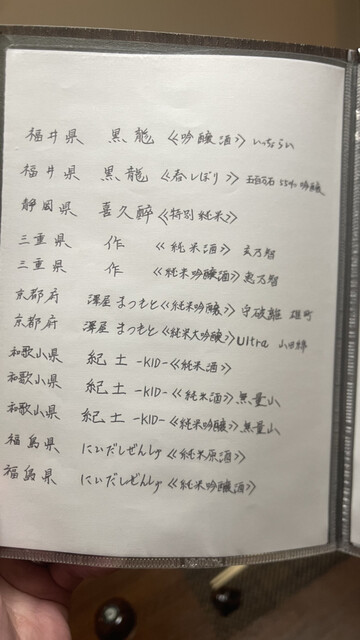 福井県 黒龍 《吟醸酒》 いっちょらい
福井県 黒龍 《春しぼり》 五百万石 55% 吟醸
静岡県 喜久醉 《特別純米》
三重県 作 《純米酒》 玄乃智
三重県 作 《純米吟醸酒》 恵乃智
京都府 澤屋まつもと 《純米吟醸》 守破離 雄町
京都府 澤屋まつもと 《純米大吟醸》 Ultra 山田錦
和歌山県 紀土 -KID- 《純米酒》
和歌山県 紀土 -KID- 《純米酒》 無量山
和歌山県 紀土 -KID- 《純米吟醸》 無量山
福島県 にいだしぜんしゅ 《純米原酒》
福島県 にいだしぜんしゅ 《純米吟醸酒》